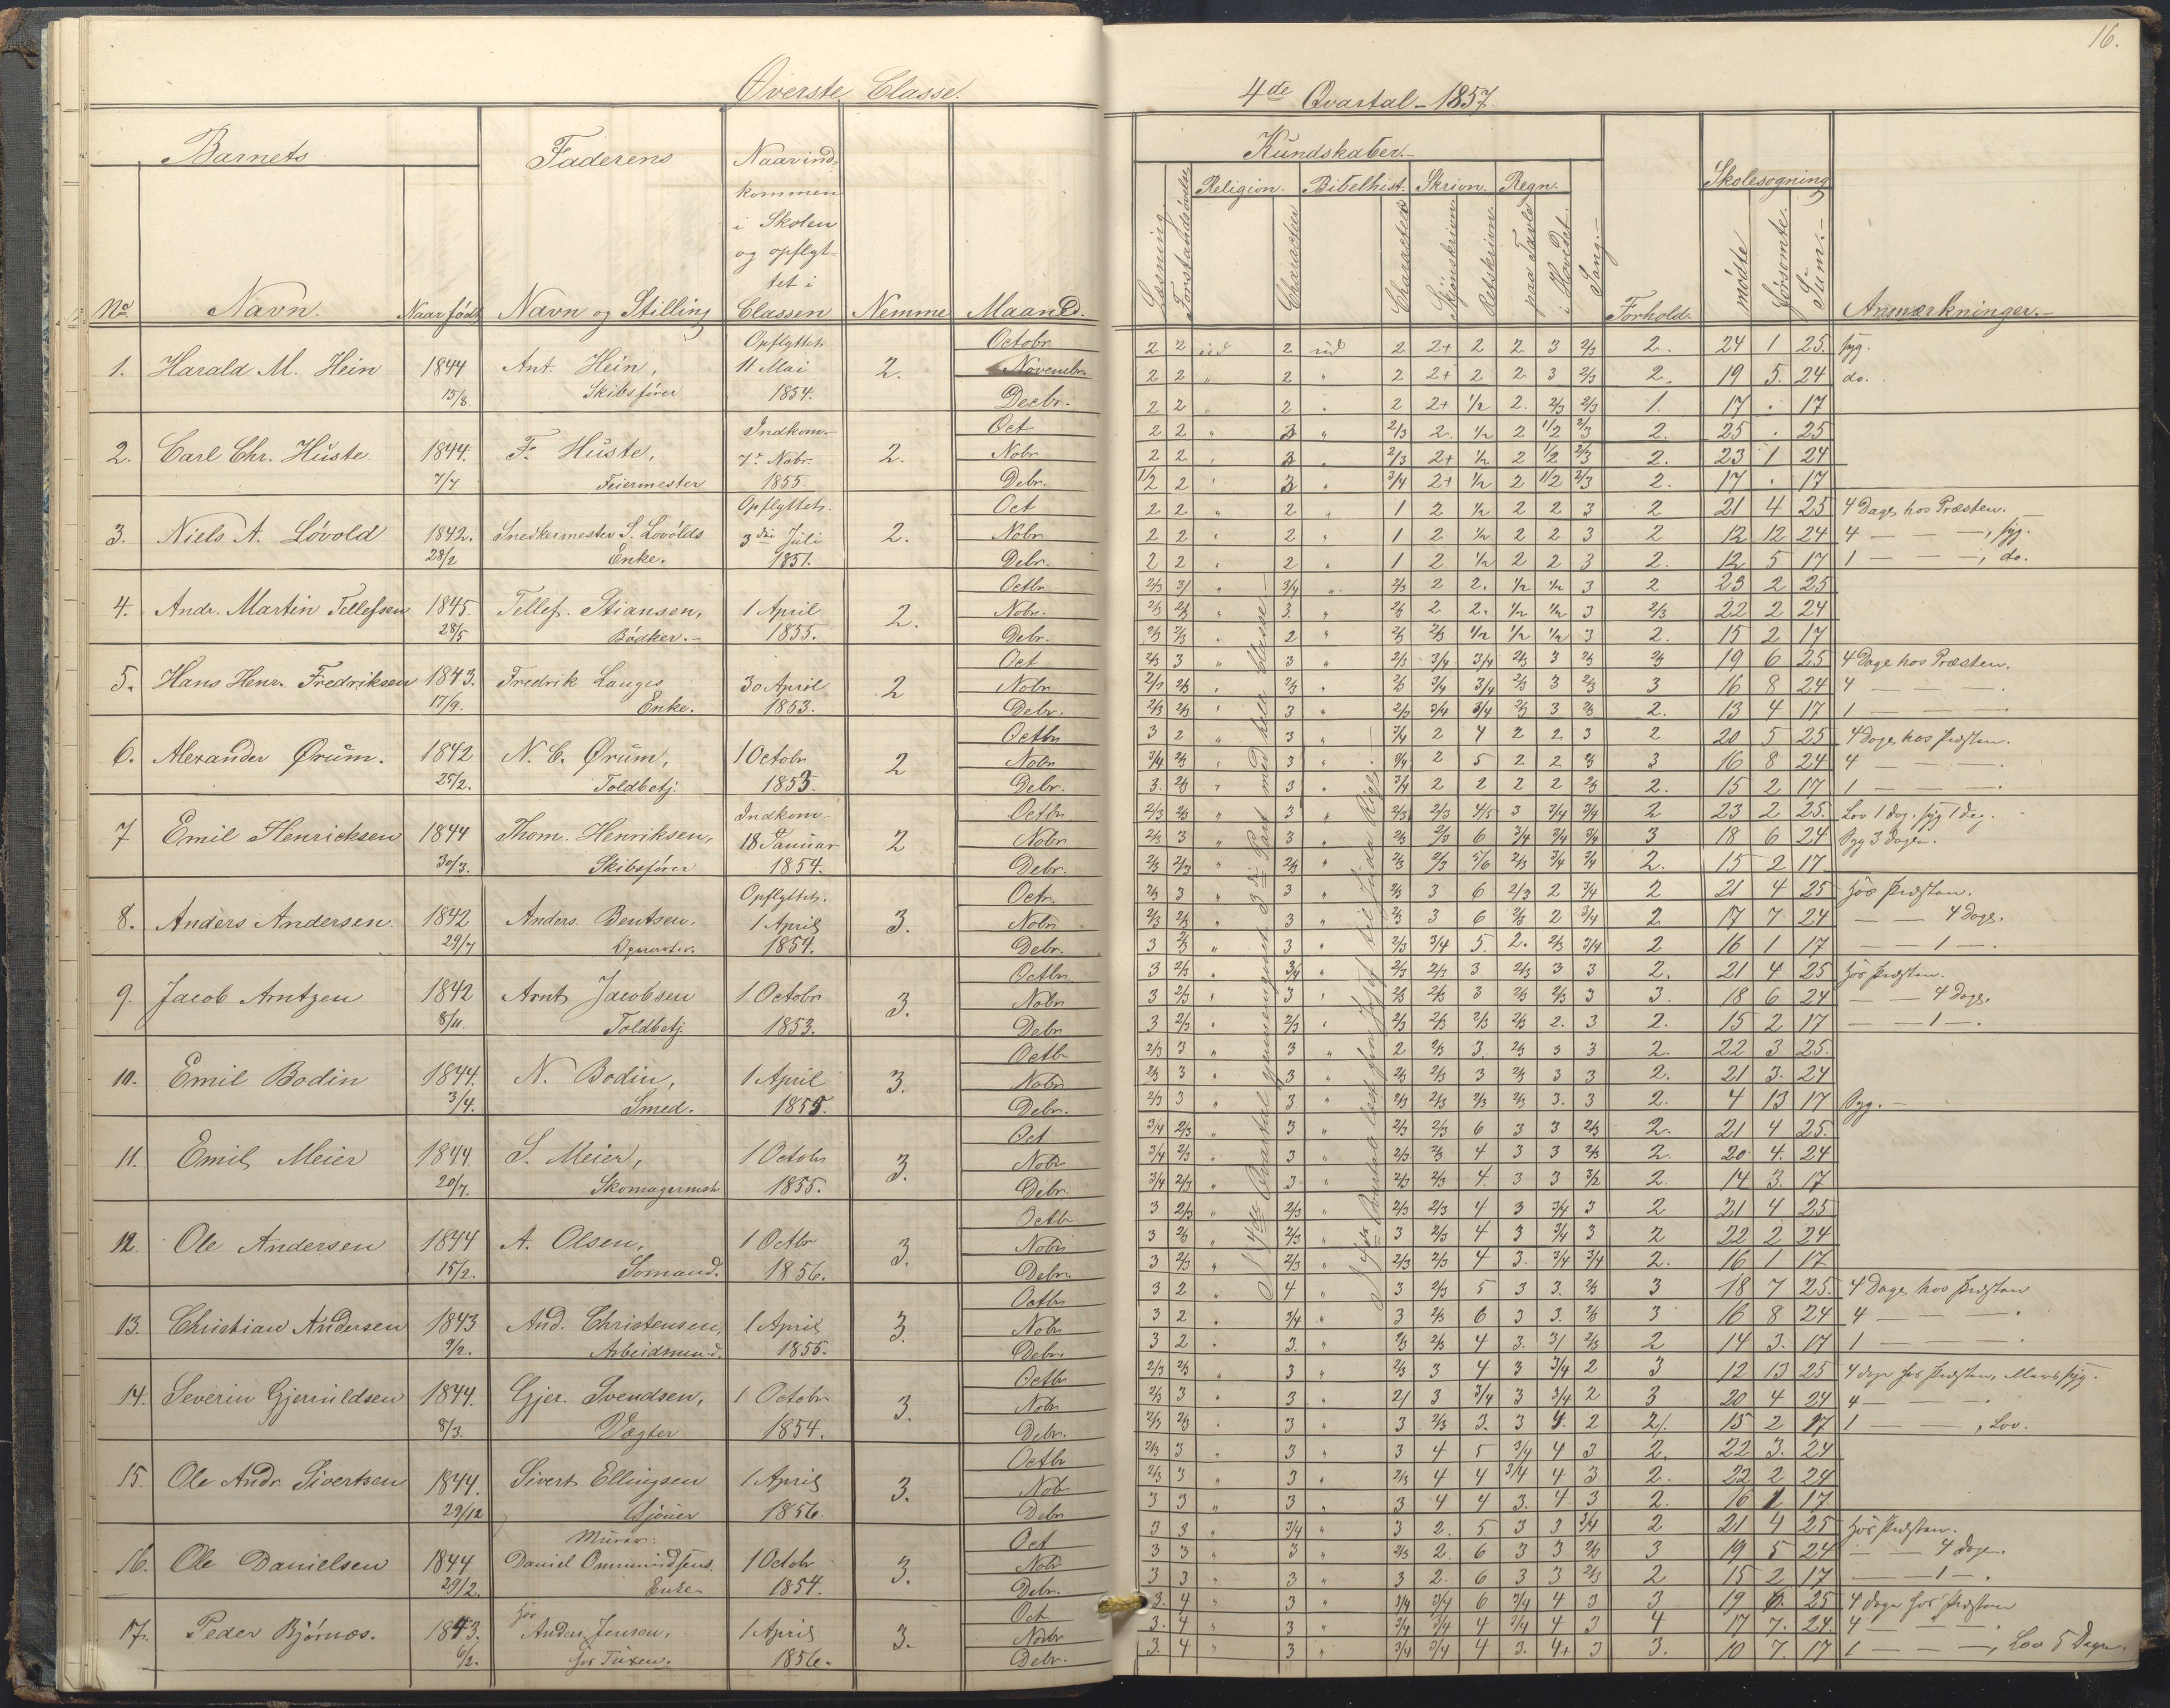 16.
Øverste Classe.
4de Qvartal - 1857.
Barnets
Faderens
Naar ind-
kommen
i Skolen
og opflyt-
tet i
Classen
Kundskaber.
Skolesøgning
Religion. Bibelhist. Skrivn. Regn.
No Navn. Naar født Navn og Stilling Nemme Maaned.
Læsning. Forstandsøvelse Charakter Charakter Skjønskrivn. Retskrivn. paa Tavle i Hovedet. Sang.
Forhold. mødte forsømte. Sum. Anmærkninger.
Opflyttet Octobr 2 2 ud 2 ud 2 2+ 2 2 3 2/3 2. 24 1 25. syg.
1. Harald M. Hein 1844 Ant. Hein, 11 Mai 2. Novembr 2 2 " 2 " 2 2+ 2 2 3 2/3 2. 19 5. 24 do.
15/8. Skibsfører 1854. Decbr. 2 2 " 2 . 2 2+ 1/2 2. 2/3 2/3 1. 17 . 17
Indkom. Oct 2 2 " 3 " 2/3 2. 1/2 2 1/2 2/3 2. 25 . 25
2. Carl Chr. Huste 1844. F. Huste, 7de Nobr. 2. Nobr 2 2 " 3 " 2/3 2+ 1/2 2 1/2 2/3 2. 23 1 24
7/7 Feiermester 1855. Debr. 1/2 2 " 3 " 3/4 2+ 1/2 2 1/2 2/3 2. 17 . 17
Opflyttet. Oct 2 2 " 2 " 1 2 1/2 2 2 3 2 21 4 25 4 Dage hos Præsten.
3. Niels A. Løvold 1842. Snedkermester S. Lovolds 3die Juli 2. Nobr 2 2 " 2 " 1 2 1/2 2 2 3 2 12 12 24 4 — — —, syg.
28/2 Enke. 1851. Debr. 2 2 " 2 " 1 2 1/2 2 2 3 2. 12 5 17 1 — — —, do.
Octbr 2/3 3/ " 3/4 " 2/3 2 2. 1/2 1/2 3 2 23 2 25
4. Andr. Martin Tellefsen 1845. Tellef. Stiansen, 1 April 2. Nobr. 2/3 2/3 " 3. " 2/3 2 2. 1/2 1/2 3 2/3 22 2 24
28/5 Bødker. 1855. Debr. 2/3 2/3 " 2 " 2/3 2/3 1/2 1/2 1/2 3 2. 15 2 17
Oct 2/3 3 " 3 " 2/3 3/4 3/4 2/3 3 2/3 2/3 19 6 25 4 Dage hos Præsten.
5. Hans Henr. Fredriksen 1843. Fredrik Langes 30 April 2 Nobr 2/3 2/3 " 2/3 " 2/3 3/4 3/4 2/3 3 2/3 3 16 8 24 4 — — —.
17/9. Enke. 1853. Debr. 2/3 2/3 " 3 " 2/3 3/4 3/4 2/3 3 2/3 2. 13 4 17 1 — — —
Octbr 3 2 " 3 " 3/4 2 4 2 2 3 2 20 5 25 4 dage hos Præsten.
6. Alexander Ørum. 1842 N. C. Ørum, 1 Octobr 2 Nobr 3/4 2/3 " 3 " 3/4 2 5 2 2 2/3 3 16 8 24 4 — — —.
25/2. Toldbetj. 1853. Debr. 3. 2/3 " 3 " 3/4 2 2 2 2 2/3 2. 15 2 17 1 — — —.
Indkom. Octbr 2/3 2/3 " 3 " 2/3 2/3 4/5 3 3/4 3/4 2 23 2 25. Lov 1 dag. syg 1 dag.
7 Emil Henricksen 1844 Thom. Henriksen, 18 Januar 2 Nobr 2/3 3 " 3 " 2/3 2/3 6 3/4 3/4 3/4 3 18 6 24 Syg 3 dage.
30/3. Skibsfører 1854. Debr. 2/3 2/3 " 2/3 " 2/3 2/3 5/6 2/3 3/4 3/4 2. 15 2 17
Opflyttet. Octr. 2/3 3 " 3 " 2/3 3 6 2/3 2 3/4 2 21 4 25 hos Præsten.
8. Anders Andersen 1842 Anders. Bentsen. 1 April 3. Nobr 2/3 2/3 " 3 " 2/3 3 6 2/3 2 3/4 2 17 7 24 — — 4 dage.
29/7 1854. Debr. 3 2/3 " 3 " 2/3 3/4 5. 2. 2/3 3/4 2 16 1 17 — — 1 —.
Octbr 3 2/3 " 3/4 " 2/3 2/3 3 2/3 3 3 2. 21 4 25 hos Præsten.
9. Jacob Arntzen 1842 Arnt Jacobsen 1 Octobr 3. Nobr 3 2/3 " 3 " 2/3 2/3 3 2/3 2/3 3 3. 18 6 24 — — 4 dage.
8/11. Toldbetj. 1853. Debr 3 2/3 " 2/3 " 2/3 2/3 2/3 2/3 2. 3 2. 15 2 17 — — 1 —.
Octb 2/3 3 " 3 " 2 2/3 3. 2/3 3 3 2. 22 3 25.
10. Emil Bodin 1844. N. Bodin, 1 April 3. Nobr 2/3 3 " 3 " 2/3 2/3 3 2/3 3 3 2. 21 3. 24
3/4. Smed. 1855. Debr. 2/3 3 " 3 " 2/3 2/3 2/3 2/3 3. 3 2. 4 13 17 Syg.
Oct 3/4 2/3 " 3 " 2/3 2/3 6 3 3 2/3 2. 21 4 25.
11. Emil Meier 1844. S. Meier, 1 Octobr 3. Nobr 3/4 2/3 " 3 " 2/3 2/3 4 3 3 2/3 2. 20 4. 24
20/7. Skomagermest 1855. Debr. 3/4 2/3 " 3 " 2/3 2/3 4. 3 3 3/2 2. 14 3. 17
Octb 3 2/3 " 2/3 " 2/3 2/3 4 3 3/4 3 2 21 4 25
12. Ole Andersen 1844 A. Olsen, 1 Octbr 3. Nobr 3 2/3 " 2/3 " 3 2/3 4 3 3/4 3 2 22 2 24
15/2. Sømand. 1856. Debr. 3 2/3 " 2/3 " 2/3 2/3 4 3. 3/4 3/4 2. 16 1 17
Octbr 3 2 " 4 " 3 2/3 5 3 3. 2/3 3 18 7 25. 4 Dage hos Præsten
13. Christian Andersen 1843 And. Christensen, 1 April 3. Nobr 3 2 " 3/4 " 3 2/3 6 3 3. 2/3 3 16 8 24 4 — — —.
9/2. Arbeidsmand. 1855. Debr. 3 2 " 3. " 2/3 2/3 4 3. 3/ 2/3 2 14 3. 17 1 — — —.
Octbr 2/3 2/3 " 3 " 2/3 3 4 3 3/4 2 3 12 13 25 4 dage hos Præsten, syg.
14. Severin Gjeruldsen 1844. Gjer. Svendsen, 1 Octobr 3. Nobr 2/3 3 " 3 " 2/ 3 3/4 3 3/4 2 3 20 4 24 4 — — —.
8/3. Vægter 1854. Debr. 2/3 2/3 " 3 " 3 2/3 3. 3 4. 2 2/. 15 2 17 1 — — —, Lov.
Octbr 2/3 3 " 3 " 3 4 5 3/4 4 3 2. 22 3. 24
15. Ole Andr. Sivertsen 1844. Sivert Ellingsen 1 April 3. Nobr 2/3 3 " 3 " 2/3 4 4 3/4 4 3 2. 22 2 24
29/12 1856. Debr 3 3 " 3 " 3 4 4 3. 4 3 2. 16 1 17
Murer. Oct 3 3 " 3/4 " 3 2. 5. 3 3 3/4 2 21 4 25 hos Præsten.
16. Ole Danielsen 1844 Daniel Ommundsens 1 Octobr 3. Nobr 3 3 " 3 " 2/3 2. 6 3 3 2/3 3 19 5 24 — — 4 dage.
29/2. Enke 1854. Debr. 3 3 " 3 " 3 2. 6 3 3 2/3 2 15 2 17 — — 1 —.
hos Oct 3. 4 " 3 " 3/4 3/4 6 3/4 4 3 3 19 6. 25 4 dage hos Præsten
17. Peder Bjørnæs. 1843. Anders Jensen, 1 April 3. Nobr 3. 4 " 3 " 3/4 3/4 4 3/4 4 3 4 17 7. 24. 4 — — —.
6/2. 1856. Debr. 3. 4 " 3 " 3/4 3/4 4 3. 4+ 3 3. 10 7. 17 1 — — —, Lov 5 Dage.
I 4de Qvartal gjennemgaaet 3die Part med hele Classen
I 4de Qvartal læst fra Josef til Juda Rige